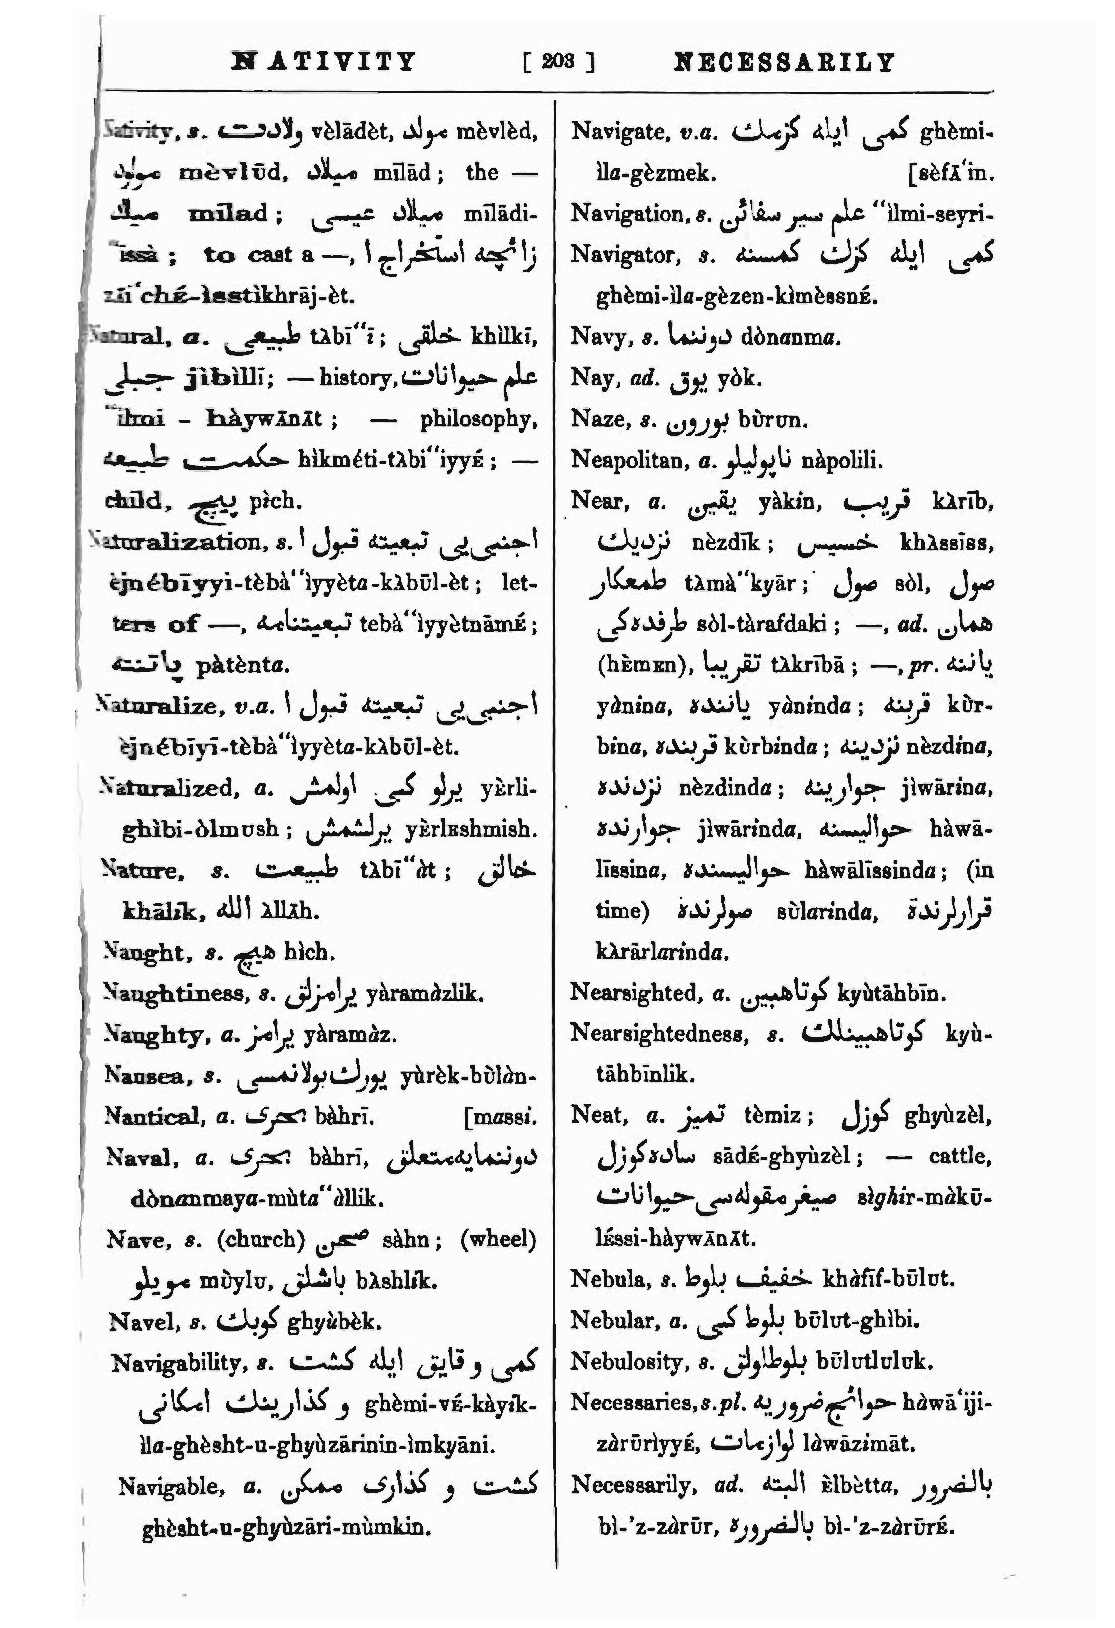 NATIVITY [ 203 ] NECESSARILY
Nativity, s. ولادت vèlādèt, مولد mèvlèd,
مولود mèvlūd, ميلاد mīlād ; the —
ميلاد mīlad ; ميلاد عيسى mīlādi-
“īssà ; to cast a —, زائچه استخراج ا
zāi‘chÉ-ìsstikhrāj-èt.
Natural, a. طبيعى tλbī“ī ; خلقى khìlkī,
جبلى jìbìllī ; — history, علم حيوانات
“ìlmi - hàywĀnĀt ; — philosophy,
حكمت طبيعه hìkméti-tλbi“iyyÉ ; —
child, پيچ pìch.
Naturalization, s. اجنبى يى تبعيته قبول ا
èjnébīyyi-tèbà“ìyyèta-kλbūl-èt ; let-
ters of —, تبعيتنامه tebà“ìyyètnāmÉ ;
پاتنته pàtènta.
Naturalize, v.a. اجنبى يى تبعيته قبول ا
èjnébīyī-tèbà“ìyyèta-kλbūl-èt.
Naturalized, a. يرلو كبى اولمش yÈrli-
ghìbi-òlmush ; يرلشمش yÈrlEshmish.
Nature, s. طبيعت tλbī“àt ; خالق
khālik, الله λllĀh.
Naught, s. هيچ hìch.
Naughtiness, s. يرامزلق yàramàzlik.
Naughty, a. يرامز yàramàz.
Nausea, s. يورك بولانمسى yùrèk-bùlàn-
Nautical, a. بحرى bàhrī. [massi.
Naval, a. بحرى bàhrī, دوننمايه متعلق
dònanmaya-mùta“àllik.
Nave, s. (church) صحن sàhn ; (wheel)
مويلو mùylu, باشلق bλshlik.
Navel, s. كوبك ghyùbèk.
Navigability, s. كمى و قايق ايله كشت
و كذارينك امكانى ghèmi-vÉ-kàyik-
ìla-ghèsht-u-ghyùzārinin-ìmkyāni.
Navigable, a. كشت و كذارى ممكن
ghèsht-u-ghyùzāri-mùmkin.
Navigate, v.a. كمى ايله كزمك ghèmi-
ìla-gèzmek. [sèfĀ‘in.
Navigation, s. علم سير سفائن “ilmi-seyri-
Navigator, s. كمى ايله كزن كمسنه
ghèmi-ìla-gèzen-kìmèssnÉ.
Navy, s. دوننما dònanma.
Nay, ad. يوق yòk.
Naze, s. بورون bùrun.
Neapolitan, a. ناپوليلو nàpolili.
Near, a. يقين yàkin, قريب kλrīb,
نزديك nèzdīk ; خسيس khλssīss,
طمعكار tλmà“kyār ; صول sòl, صول
طرفنده كى sòl-tàrafdaki ; —, ad. همان
(hÈmEn), تقريبا tλkrībā ; —, pr. ياننه
yànina, ياننده yàninda ; قربنه kùr-
bina, قربنده kùrbinda ; نزدينه nèzdina,
نزدنده nèzdinda ; جوارينه jìwārina,
جوارنده jìwārinda, حواليسنه hàwā-
līssina, حواليسنده hàwālīssinda ; (in
time) صولرنده sùlarinda, قرارلرنده
kλrārlarinda.
Nearsighted, a. كوتاهبين kyùtāhbīn.
Nearsightedness, s. كوتاهبينلك kyù-
tāhbīnlik.
Neat, a. تميز tèmiz ; كوزل ghyùzèl,
ساده كوزل sādÉ-ghyùzèl ; — cattle,
صيغر مقوله سى حيوانات sìghir-màkū-
lÉssi-hàywĀnĀt.
Nebula, s. خفيف بلوط khàfīf-būlut.
Nebular, a. بلوط كبى būlut-ghìbi.
Nebulosity, s. بلوطلولق būlutluluk.
Necessaries, s.pl. حوائج ضروريه hàwā‘iji-
zàrūrìyyÉ, لوازمات làwāzimāt.
Necessarily, ad. البته Èlbètta, بالضرور
bì-'z-zàrūr, بالضروره bì-'z-zàrūrÉ.